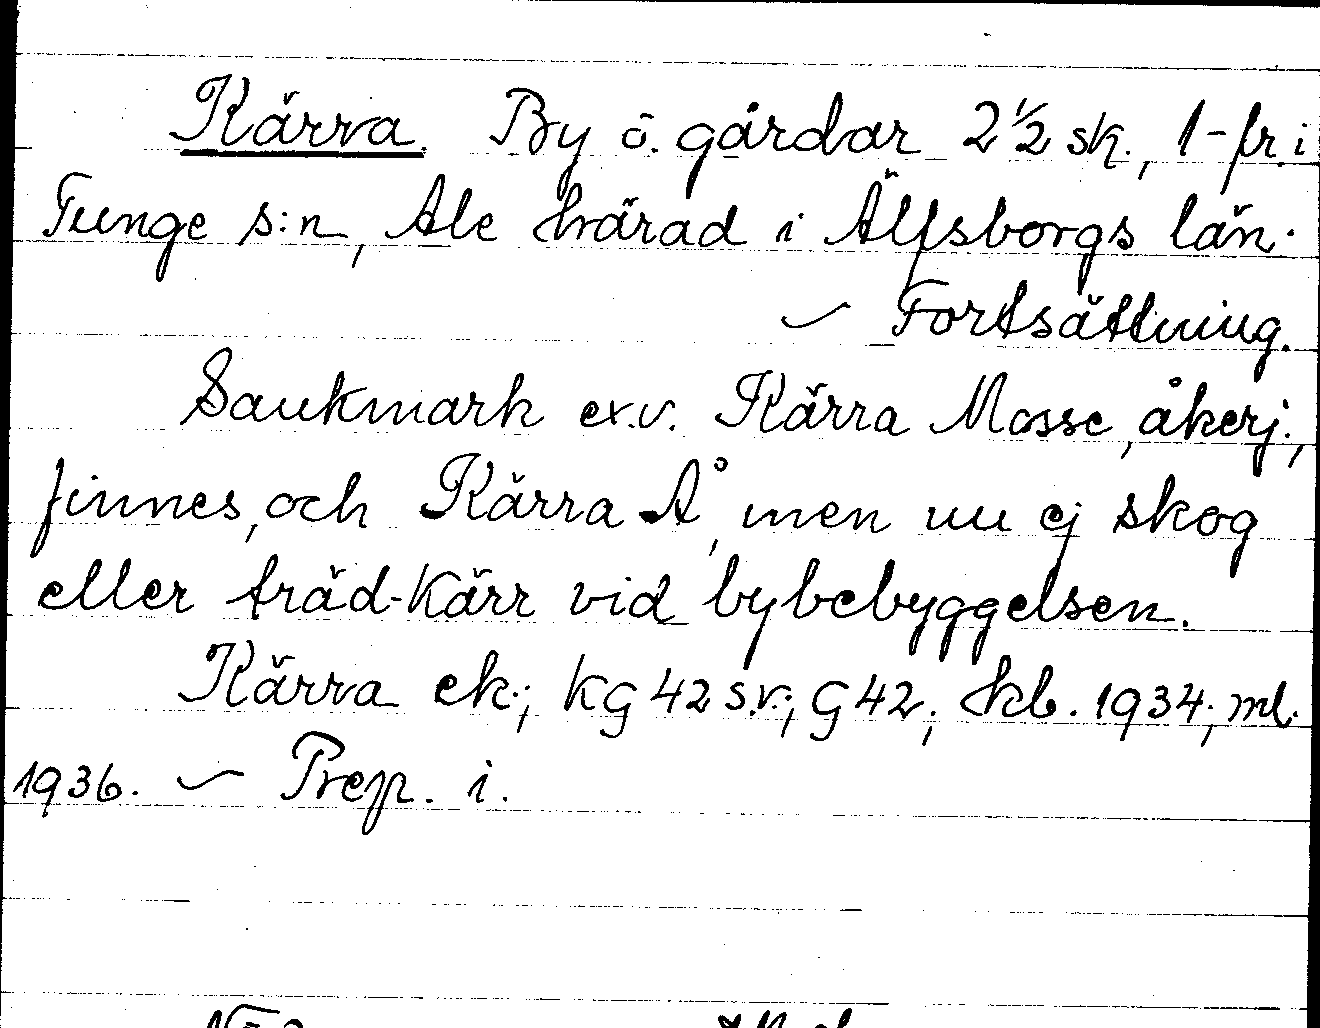 Kärra. By ö. gårdar 2 1/2 sk., 1 - fr. i
Tunge s:n, Ale härad i Älfsborgs län.
~ Fortsättning.
Sankmark ex.v. Kärra Mosse, åkerj.,
finnes, och Kärra Å, men nu ej skog
eller träd-Kärr vid bybebyggelsen.
Kärra ek.; KG 42 s.v.; G 42; kb. 1934; ml.
1936. ~ Prep. i.